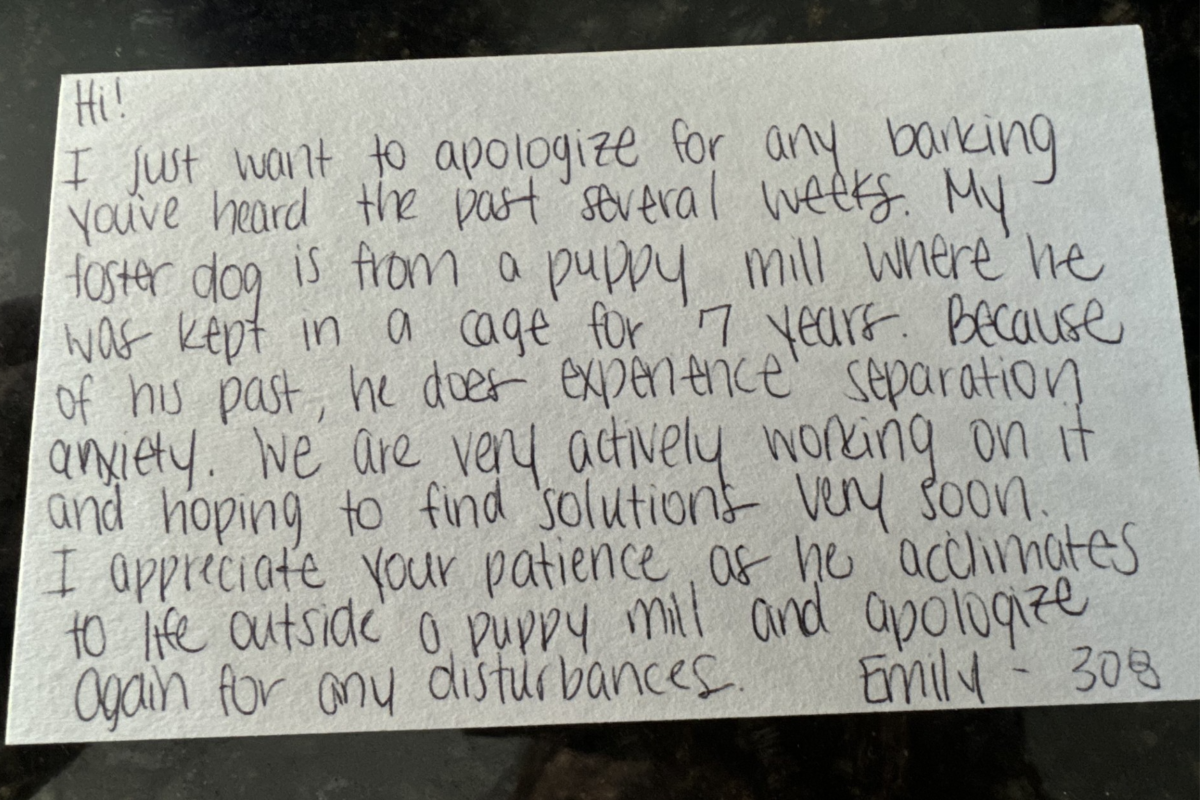 Hi!
I just want to apologize for any barking
you've heard the past several weeks. My
foster dog is from a puppy mill where he
was kept in a cage for 7 years. Because
of his past, he does experience separation
anxiety. We are very actively working on it
and hoping to find solutions very soon.
I appreciate your patience as he acclimates
to life outside a puppy mill and apologize
again for any disturbances. Emily - 308